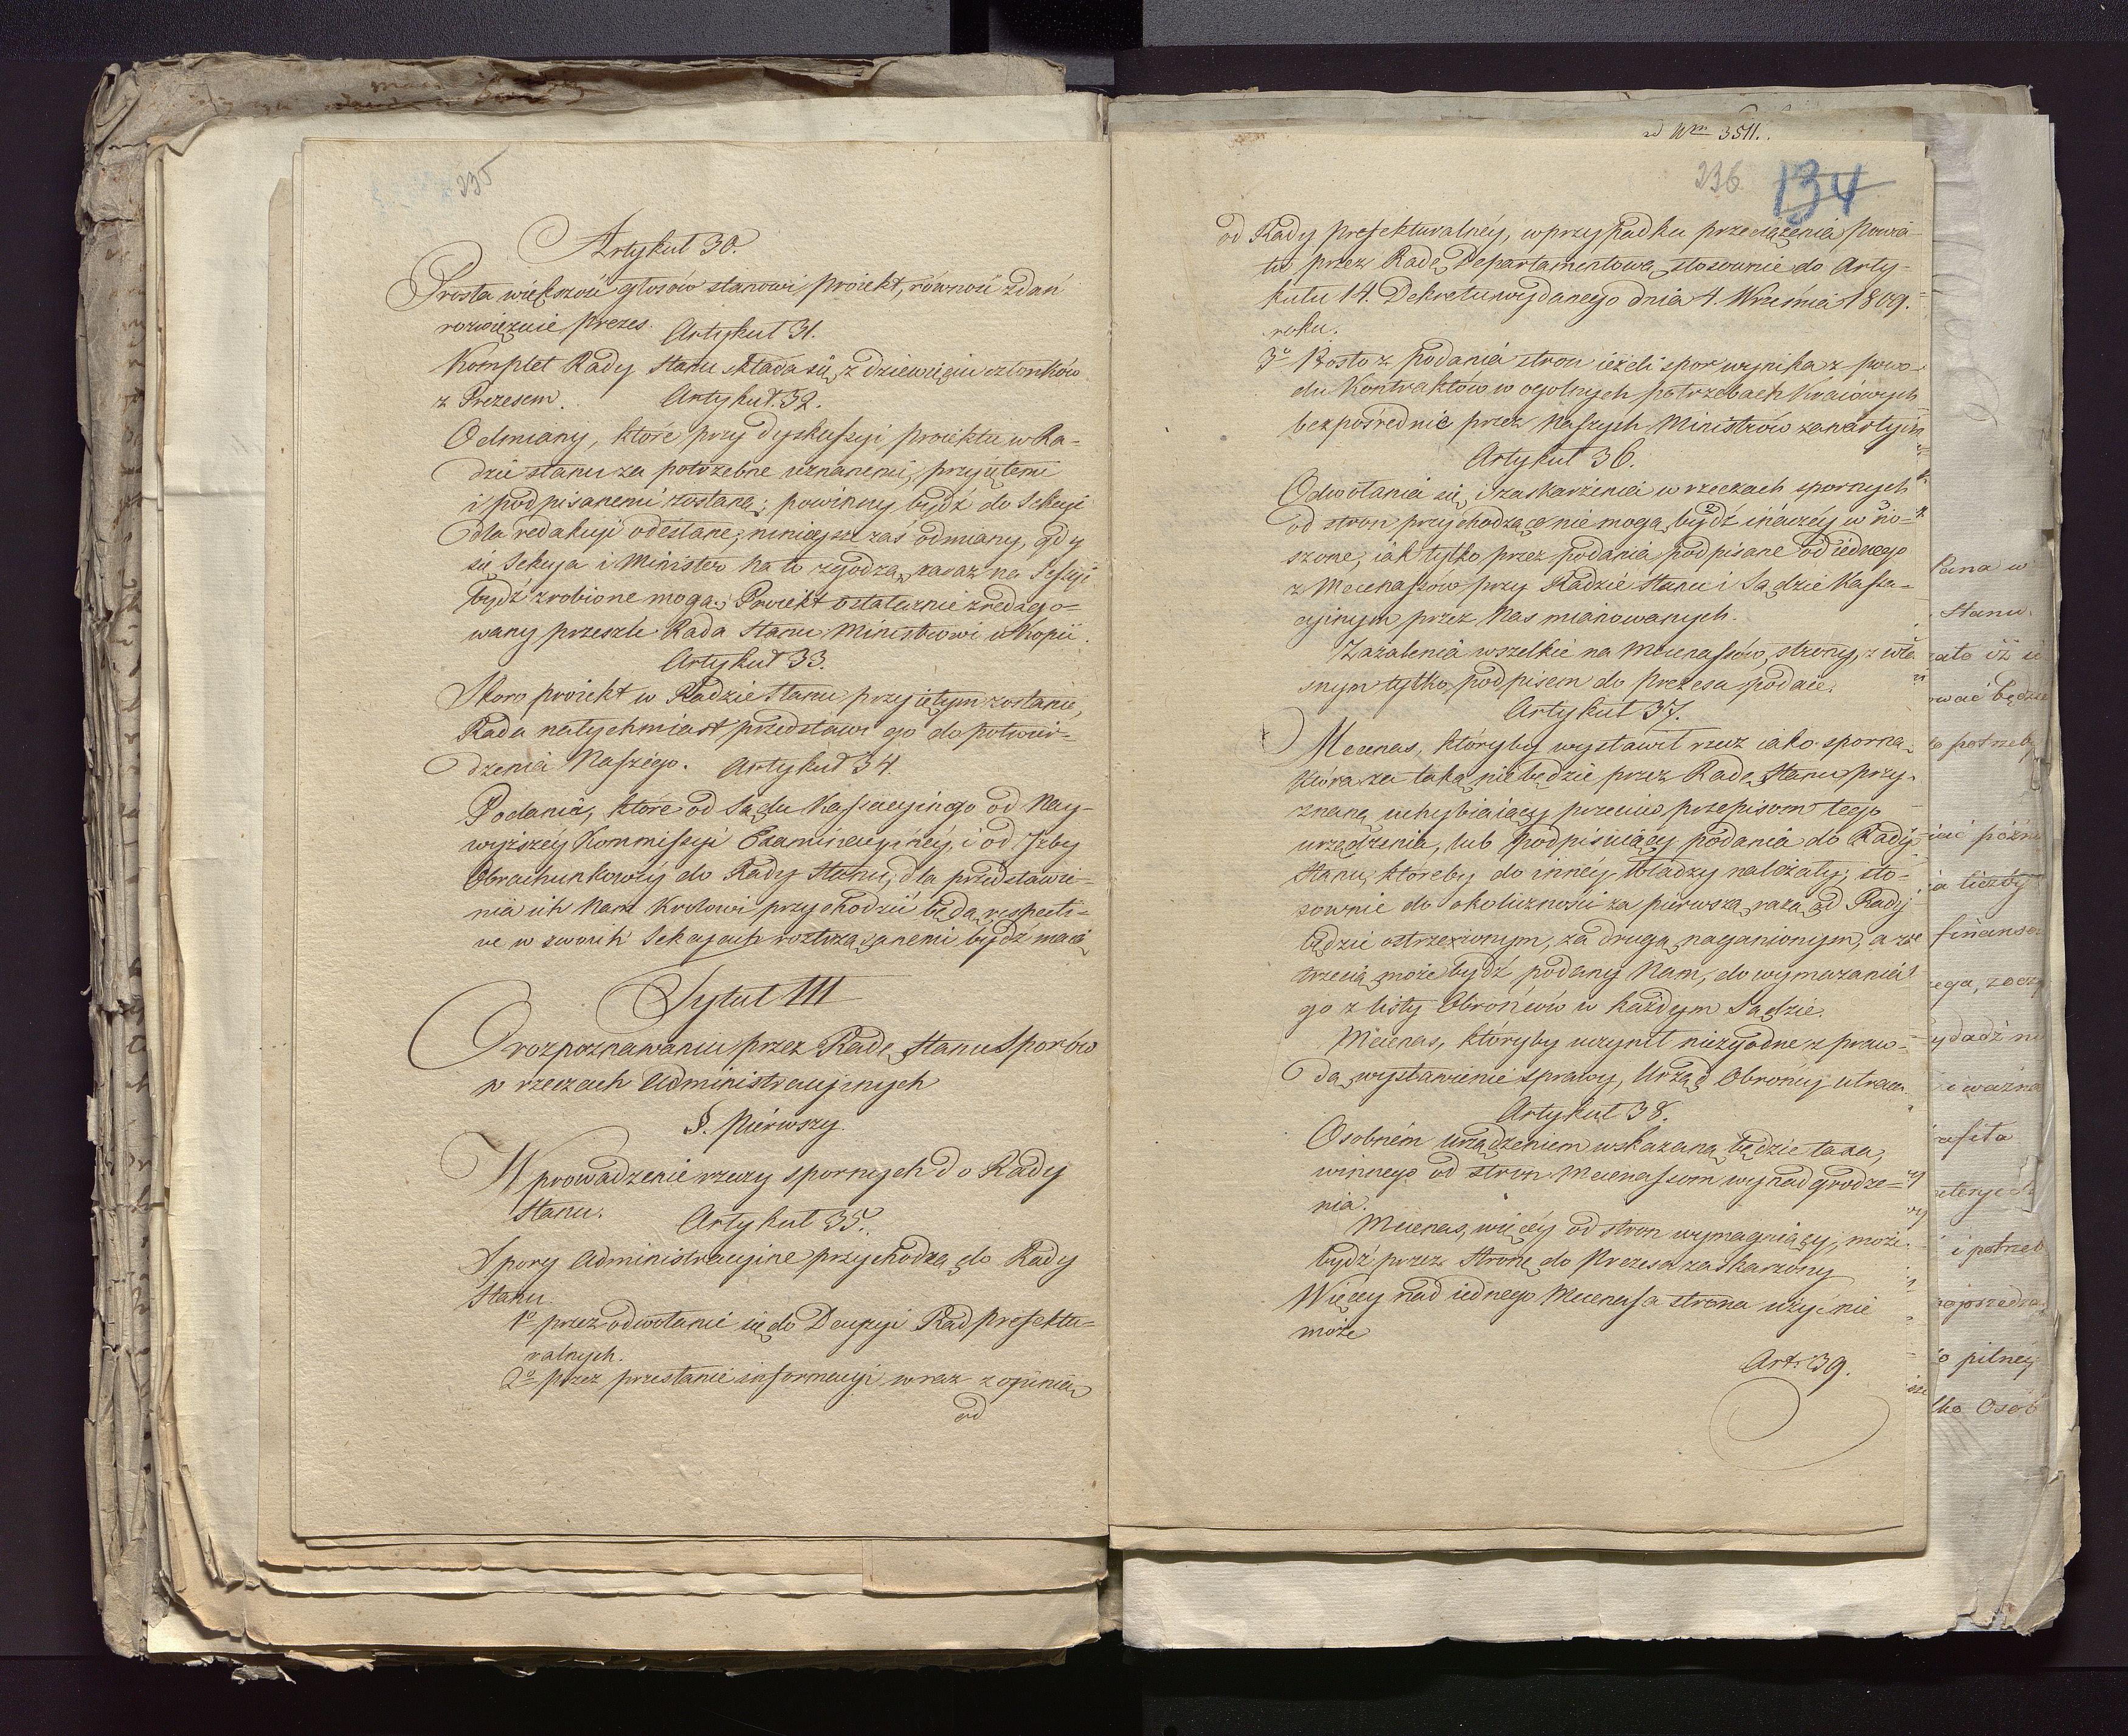 235
Artykuł 30.
Prosta większość głosów stanowi proiekt, równość zdań
rozwięzuie prezes.
Artykuł 31.
Komplet Rady Stanu składa się z dziewięciu członków
z Prezesem.
Artykuł 32.
Odmiany, które przy dyskussyi proiektu w Ra-
dzie stanu za potrzebne uznanemi, przyiętemi
i podpisanemi zostaną; powinny bydź do Sekcyi
dla redakcyi odesłane; mnieysze zaś odmiany, gdy
się Sekcya i Minister na to zgodzą, zaraz na Sessyi
bydź zrobione mogą; Proiekt ostatecznie zredago-
wany prześle Rada Stanu Ministrowi w Kopii.
Artykuł 33.
Skoro proiekt w Radzie Stanu przyiętym zostanie,
Rada natychmiast przedstawi go do potwier-
dzenia Naszego.
Artykuł 34.
Podania, które od Sądu Kassacyinego od Nay-
wyższéy Kommissyi Examinacyinéy, i od Izby
Obrachunkowéy do Rady Stanu, dla przedstawie-
nia ich Nam Królowi przychodzić będą, respecti-
ve w swoich Sekcyach roztrząsanemi bydź maią
Tytuł III
O rozpoznawaniu przez Radę Stanu Sporów
w rzeczach Administracyinych
§. Piérwszy.
Wprowadzenie rzeczy spornych do Rady
Stanu.
Artykuł 35.
Spory Administracyine przychodzą do Rady
Stanu.
1º przez odwołanie się do Decyzyi Rad prefektu-
ralnych.
2º przez przesłanie informacyi wraz z opinią
od
ad Nrm 3511.
236 134
od Rady prefekturalnéy, w przypadku przeciążenia Powia-
tu przez Radę Departamentową stosownie do Arty-
kułu 14. Dekretu wydanego dnia 4. Września 1809.
roku.
3º Prosto z podania stron ieżeli spor wynika z powo-
du Kontraktów w ogolnych potrzebach Kraiowych
bezpośrednie przez Naszych Ministrów zawartych
Artykuł 36.
Odwołania się, i zaskarżenia w rzeczach spornych
od stron przychodzące nie mogą bydź inaczéy w no-
szone, iak tylko przez podania podpisane od iednego
z Mecenassow przy Radzie Stanu i Sądzie Kassa-
cyinym przez Nas mianowanych.
Zażalenia wszelkie na Mecenassów, strony, z wła-
snym tylko podpisem do Prezesa podaie.
Artykuł 37.
Mecenas, któryby wystawił rzecz iako sporną,
która za taką nie będzie przez Radę Stanu przy-
znaną uchybiaiący przeciw przepisom tego
urządzenia, lub podpisuiący podania do Rady
Stanu, któreby do innéy Władzy należały; sto-
sownie do okoliczności za piérwszą razą od Rady
będzie ostrzeżonym, za drugą naganionym, a za
trzecią może bydź podany Nam, do wymazania
go z listy Obrońców w każdym Sądzie.
Mecenas, któryby uczynił niezgodne z praw-
dą wystawienie sprawy, Urząd Obrończy utraca.
Artykuł 38.
Osobném urządzeniem wskazaną będzie taxa,
winnego od stron Mecenassom wynadgrodze-
nia.
Mecenas, więcéy od stron wymagaiący, może
bydź przez Stronę do Prezesa zaskarżony
Więcey nad iednego Mecenasa strona użyć nie
może
Art: 39.
Stanu.
potrzeb
liczby
finanso
Osób